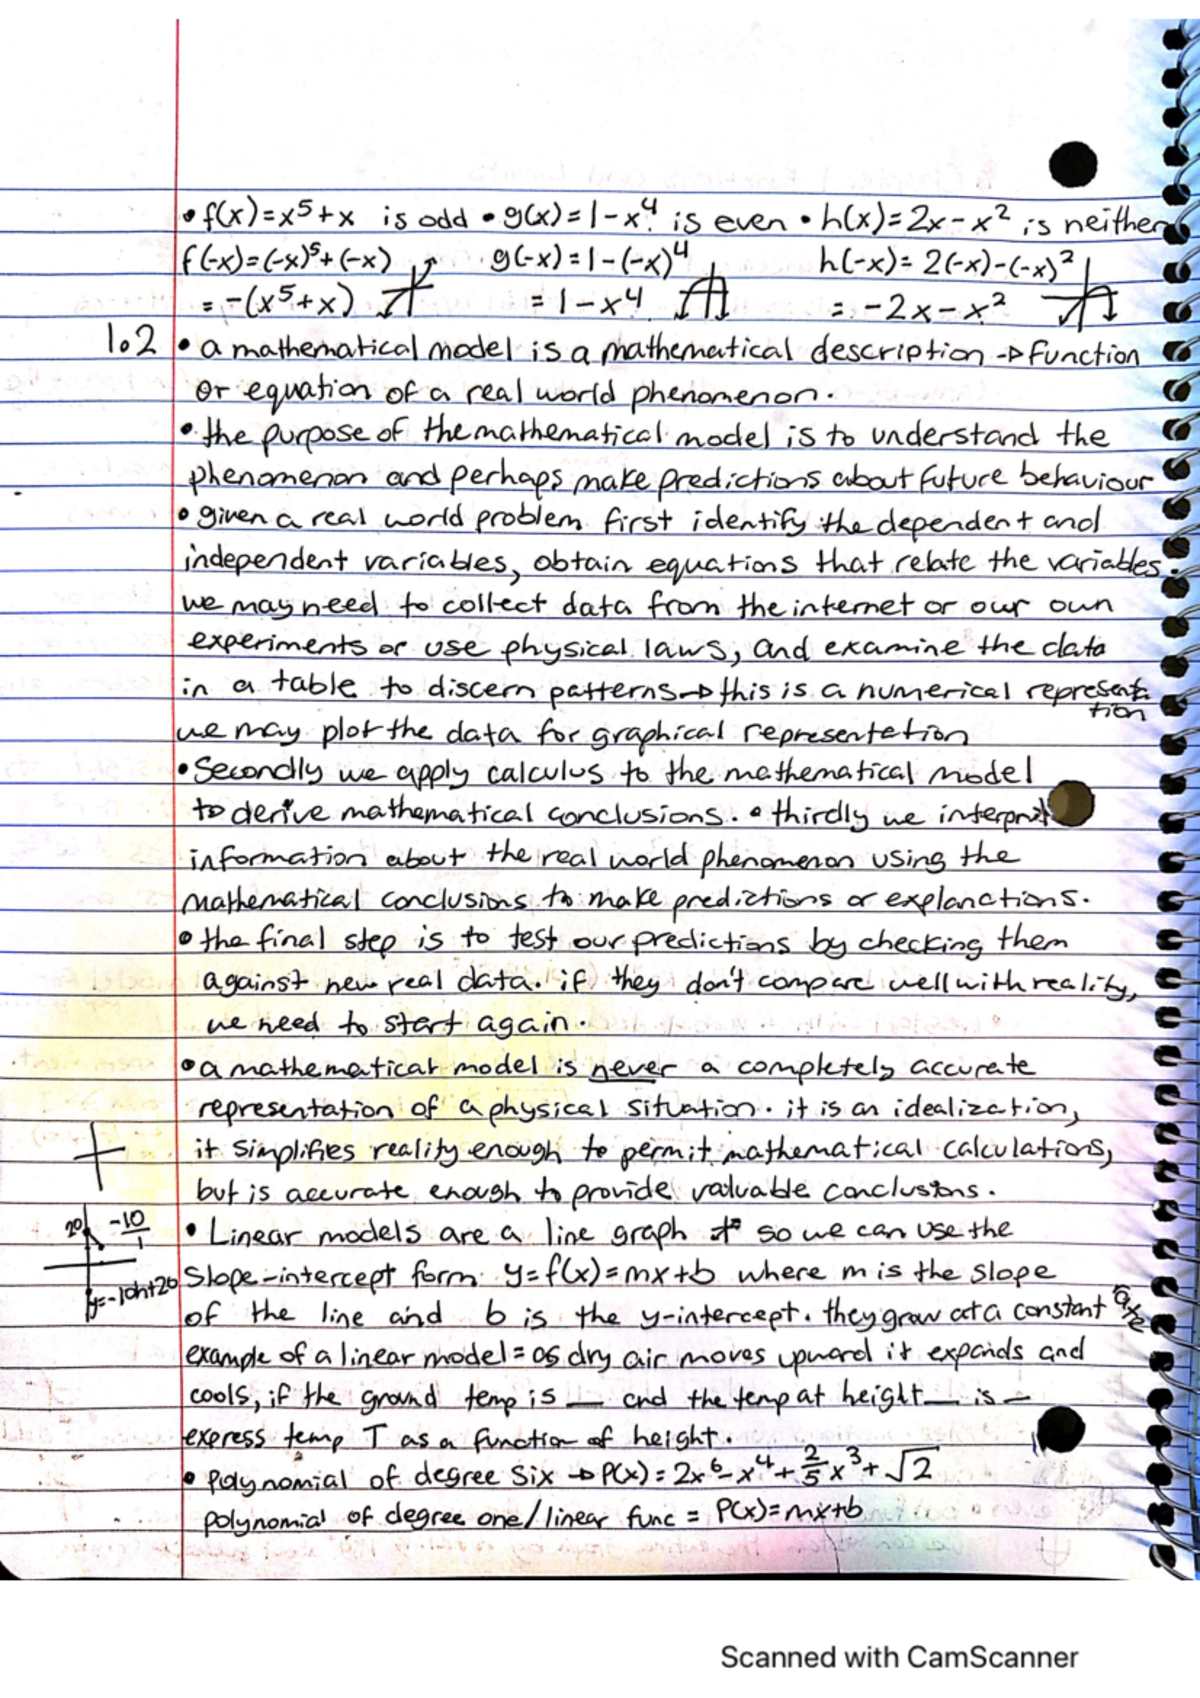 • f(x)=x⁵+x is odd • g(x)=1-x⁴ is even • h(x)=2x-x² is neither
f(-x)=(-x)⁵+(-x) g(-x)=1-(-x)⁴ h(-x)=2(-x)-(-x)²
=-(x⁵+x) =1-x⁴ =-2x-x²
1.2 • a mathematical model is a mathematical description → function
or equation of a real world phenomenon.
• the purpose of the mathematical model is to understand the
phenomenon and perhaps make predictions about future behaviour
• given a real world problem first identify the dependent and
independent variables, obtain equations that relate the variables.
we may need to collect data from the internet or our own
experiments or use physical laws, and examine the data
in a table to discern patterns → this is a numerical representation
we may plot the data for graphical representetion
• Secondly we apply calculus to the mathematical model
to derive mathematical conclusions. • thirdly we interpret
information about the real world phenomenon using the
mathematical conclusions to make predictions or explanations.
• the final step is to test our predictions by checking them
against new real data. if they don't compare well with reality,
we need to start again.
• a mathematical model is never a completely accurate
representation of a physical situation. it is an idealization,
it simplifies reality enough to permit mathematical calculations,
but is accurate enough to provide valuable conclusions.
20 -10/1 • Linear models are a line graph so we can use the
y=-10h+20 Slope-intercept form y=f(x)=mx+b where m is the slope
of the line and b is the y-intercept. they grow at a constant rate
example of a linear model = as dry air moves upward it expands and
cools, if the ground temp is __ and the temp at height __ is __
express temp T as a function of height.
• Polynomial of degree six → P(x)=2x⁶-x⁴+2/5x³+√2
polynomial of degree one/linear func = P(x)=mx+b
Scanned with CamScanner